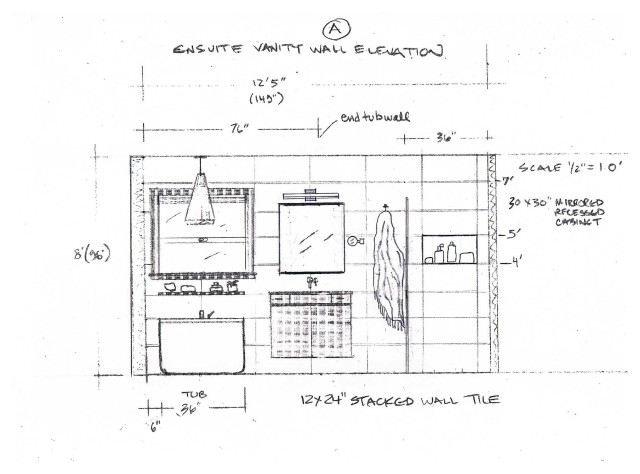 A
ENSUITE VANITY WALL ELEVATION
12'5"
(149")
76"
end tub wall
36"
SCALE 1/2" = 1'0'
7'
30 x 30" MIRRORED
RECESSED
CABINET
5'
8' (96")
4'
TUB
36"
6"
12x24" STACKED WALL TILE